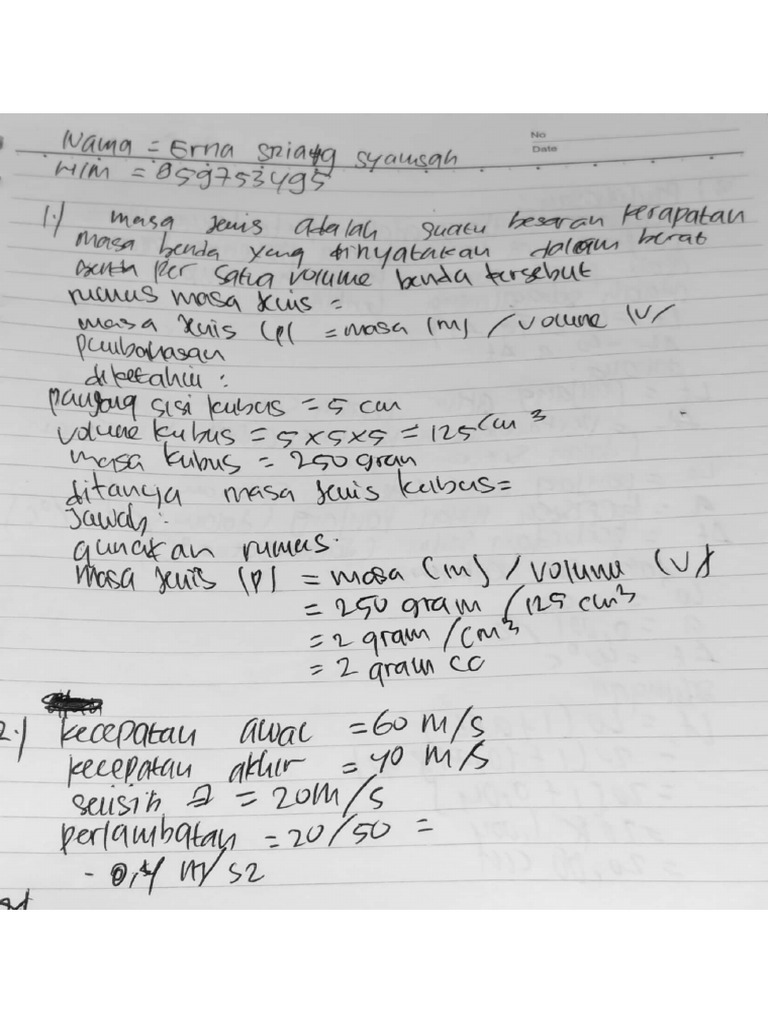 No
Date
Nama = Erna Syamsah
NIM = 859753495
1.) masa jenis adalah suatu besaran kerapatan
masa benda yang dinyatakan dalam berat
benda per satia volume benda tersebut
rumus masa jenis =
masa jenis (p) = masa (m) / volume (v)
pembahasan
diketahui :
panjang sisi kubus = 5 cm
volume kubus = 5 x 5 x 5 = 125 cm³
masa kubus = 250 gram
ditanya masa jenis kubus =
Jawab :
gunakan rumus.
masa jenis (p) = masa (m) / volume (v)
= 250 gram / 125 cm³
= 2 gram / cm³
= 2 gram cc
2.) kecepatan awal = 60 m/s
kecepatan akhir = 40 m/s
selisih = 20 m/s
perlambatan = 20/50 =
- 0,4 m/s2